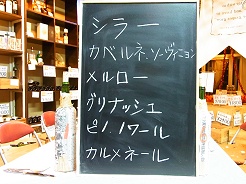 シラー
カベルネ・ソーヴィニョン
メルロー
グリナッシュ
ピノ ノワール
カルメネール